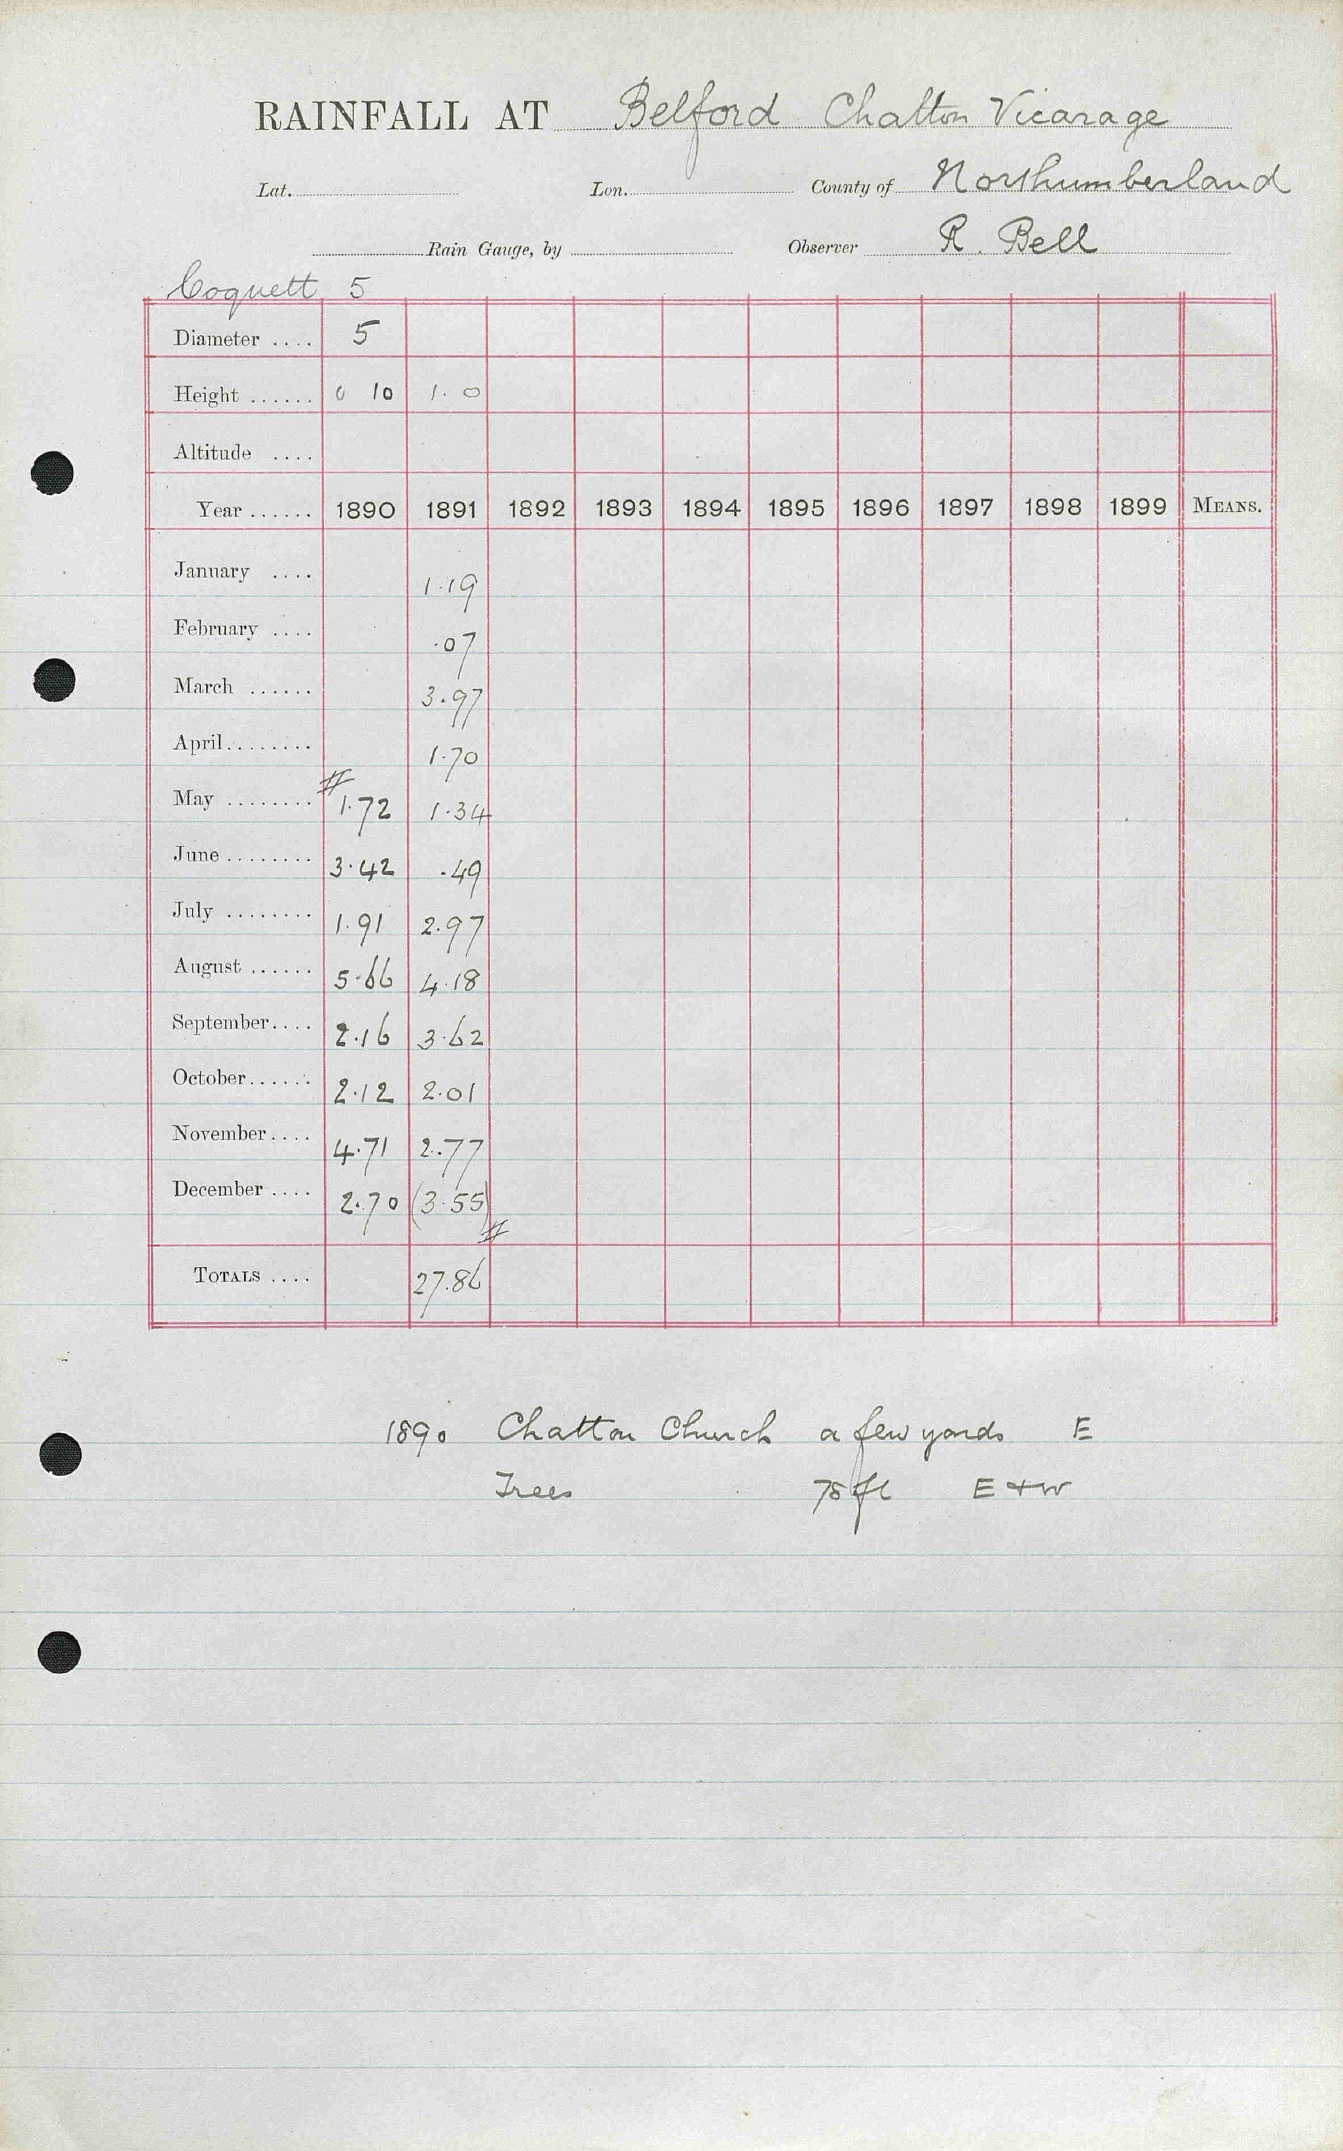 RAINFALL AT Belford Chatton Vicarage
Lat. Lon. County of Northumberland
Rain Gauge, by Observer R. Bell
Coquett 5
Diameter .... 5
Height ...... 0 10 1.0
Altitude ....
Year ...... 1890 1891 1892 1893 1894 1895 1896 1897 1898 1899 MEANS.
January .... 1.19
February .... .07
March ...... 3.97
April........ 1.70
May ........ # 1.72 1.34
June ........ 3.42 .49
July ........ 1.91 2.97
August ...... 5.66 4.18
September.... 2.16 3.62
October...... 2.12 2.01
November.... 4.71 2.77
December .... 2.70 (3.55) #
TOTALS .... 27.86
1890 Chatton Church a few yards E
Trees 75 ft E + W